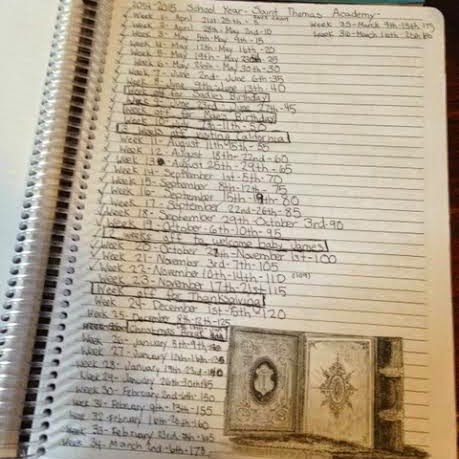 2014-2015 School Year - Saint Thomas Academy
Week 1- April 21st-25th-5
Week 2- April 28th-May 2nd-10
Week 3- May 5th-May 9th-15
Week 4- May 12th-May 16th-20
Week 5- May 19th-May
Week 6- May 26th-May 30th-30
Week 7- June 2nd-June 6th-35
Week 8- June 9th-June 13th-40
Week off for Sadie's Birthday
Week 9- June 23rd-June 27th-45
Week off for Birthday
Week 10- July 7th-11th-50
Weeks off visiting California
Week 11- August 11th-15th-55
Week 12- August 18th-22nd-60
Week 13- August 25th-29th-65
Week 14- September 1st-5th-70
Week 15- September 8th-12th-75
Week 16- September 15th-19th-80
Week 17- September 22nd-26th-85
Week 18- September 29th-October 3rd-90
Week 19- October 6th-10th-95
weeks off to welcome baby James
Week 20- October November 1st-100
Week 21- November 3rd-7th-105
Week 22- November 10th-14th-110 (109)
Week 23- November 17th-21st-115
Week off for Thanksgiving
Week 24- December 1st-5th-120
Week 25- December 8th-12th-125
Christmas
Week 26- January 5th-9th-
Week 27- January 12th-16th-
Week 28- January 19th-23rd-
Week 29- January 26th-30th-145
Week 30- February 2nd-6th-150
Week 31- February 9th-13th-155
Week 32- February 16th-20th-160
Week 33- February 23rd-
Week 34- March 2nd-6th-170
Week 35- March 9th-13th-175
Week 36- March 16th-20th-180